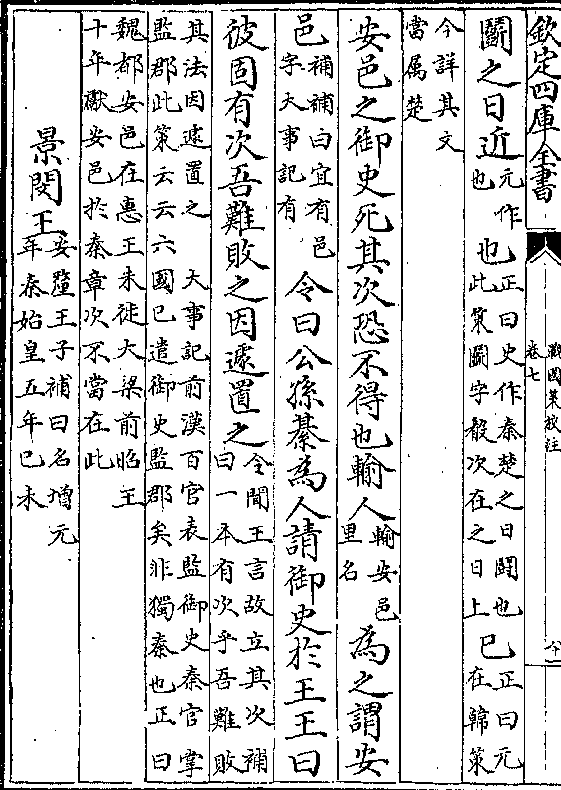 欽定四庫全書
戰國策校注
卷七
八十一
鬬之日近元作也也正曰史作秦楚之日鬬也此策鬬字殽次在之日上已正曰元在韓策
今詳其文當属楚
安邑之御史死其次恐不得也輸人輸安邑里名為之謂安
邑補補曰宜有邑字大事記有令曰公孫綦為人請御史於王王曰
彼固有次吾難敗之因遽置之令聞王言故立其次補曰一本有次乎吾難敗
其法因遽置之　大事記前漢百官表監御史秦官掌監郡此策云云六國已遣御史監郡矣非獨秦也正曰
魏都安邑在惠王未徙大梁前昭王十年獻安邑於秦章次不當在此
景閔王安釐王子補曰名增元年秦始皇五年己未